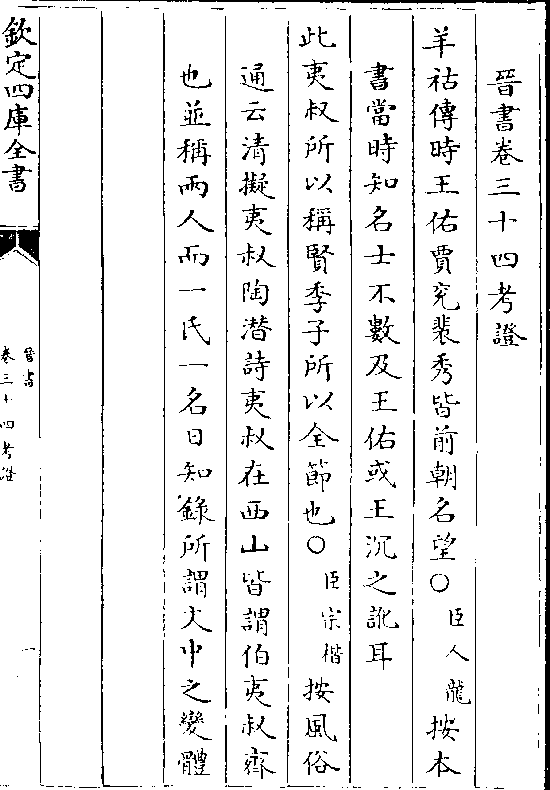 晉書卷三十四考證
羊祜傳時王佑賈充裴秀皆前朝名望○臣人龍按本
書當時知名士不數及王佑或王沉之訛耳
此夷叔所以稱賢季子所以全節也○臣宗楷按風俗
通云清擬夷叔陶潛詩夷叔在西山皆謂伯夷叔齊
也並稱兩人而一氏一名日知錄所謂文中之變體
欽定四庫全書
晉書
卷三十四考證
一